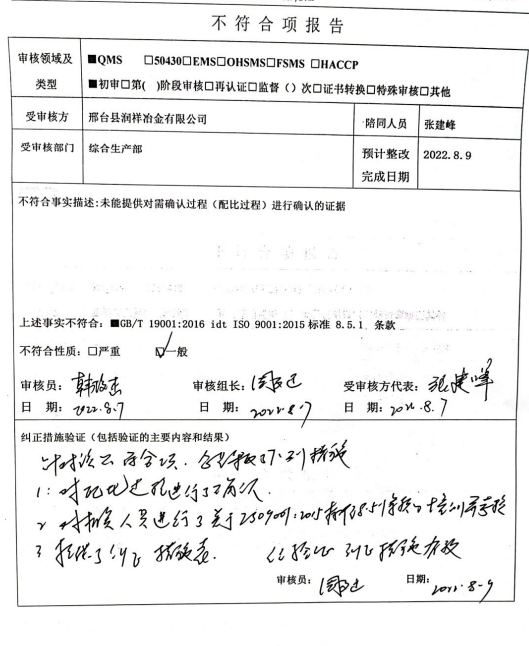 不符合项报告
审核领域及类型
■QMS □50430□EMS□OHSMS□FSMS □HACCP
■初审□第( )阶段审核□再认证□监督（）次□证书转换□特殊审核□其他
受审核方 邢台县润祥冶金有限公司 陪同人员 张建峰
受审核部门 综合生产部 预计整改完成日期 2022.8.9
不符合事实描述:未能提供对需确认过程（配比过程）进行确认的证据
上述事实不符合：■GB/T 19001:2016 idt ISO 9001:2015 标准 8.5.1 条款
不符合性质：□严重 ☑一般
审核员： 审核组长： 受审核方代表：张建峰
日 期：2022.8.7 日 期：2022.8.7 日 期：2022.8.7
纠正措施验证（包括验证的主要内容和结果）
针对该不符合项，企业采取了下列措施
1：对配比过程进行了确认
2 对相关人员进行了关于ISO9001:2015标准8.5.1条款的培训并考核
3 提供了纠正措施表. 经验证 纠正措施有效
审核员： 日期：2022.8.9